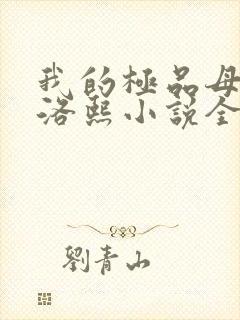 我的極品母
洛熙小說全
劉青山